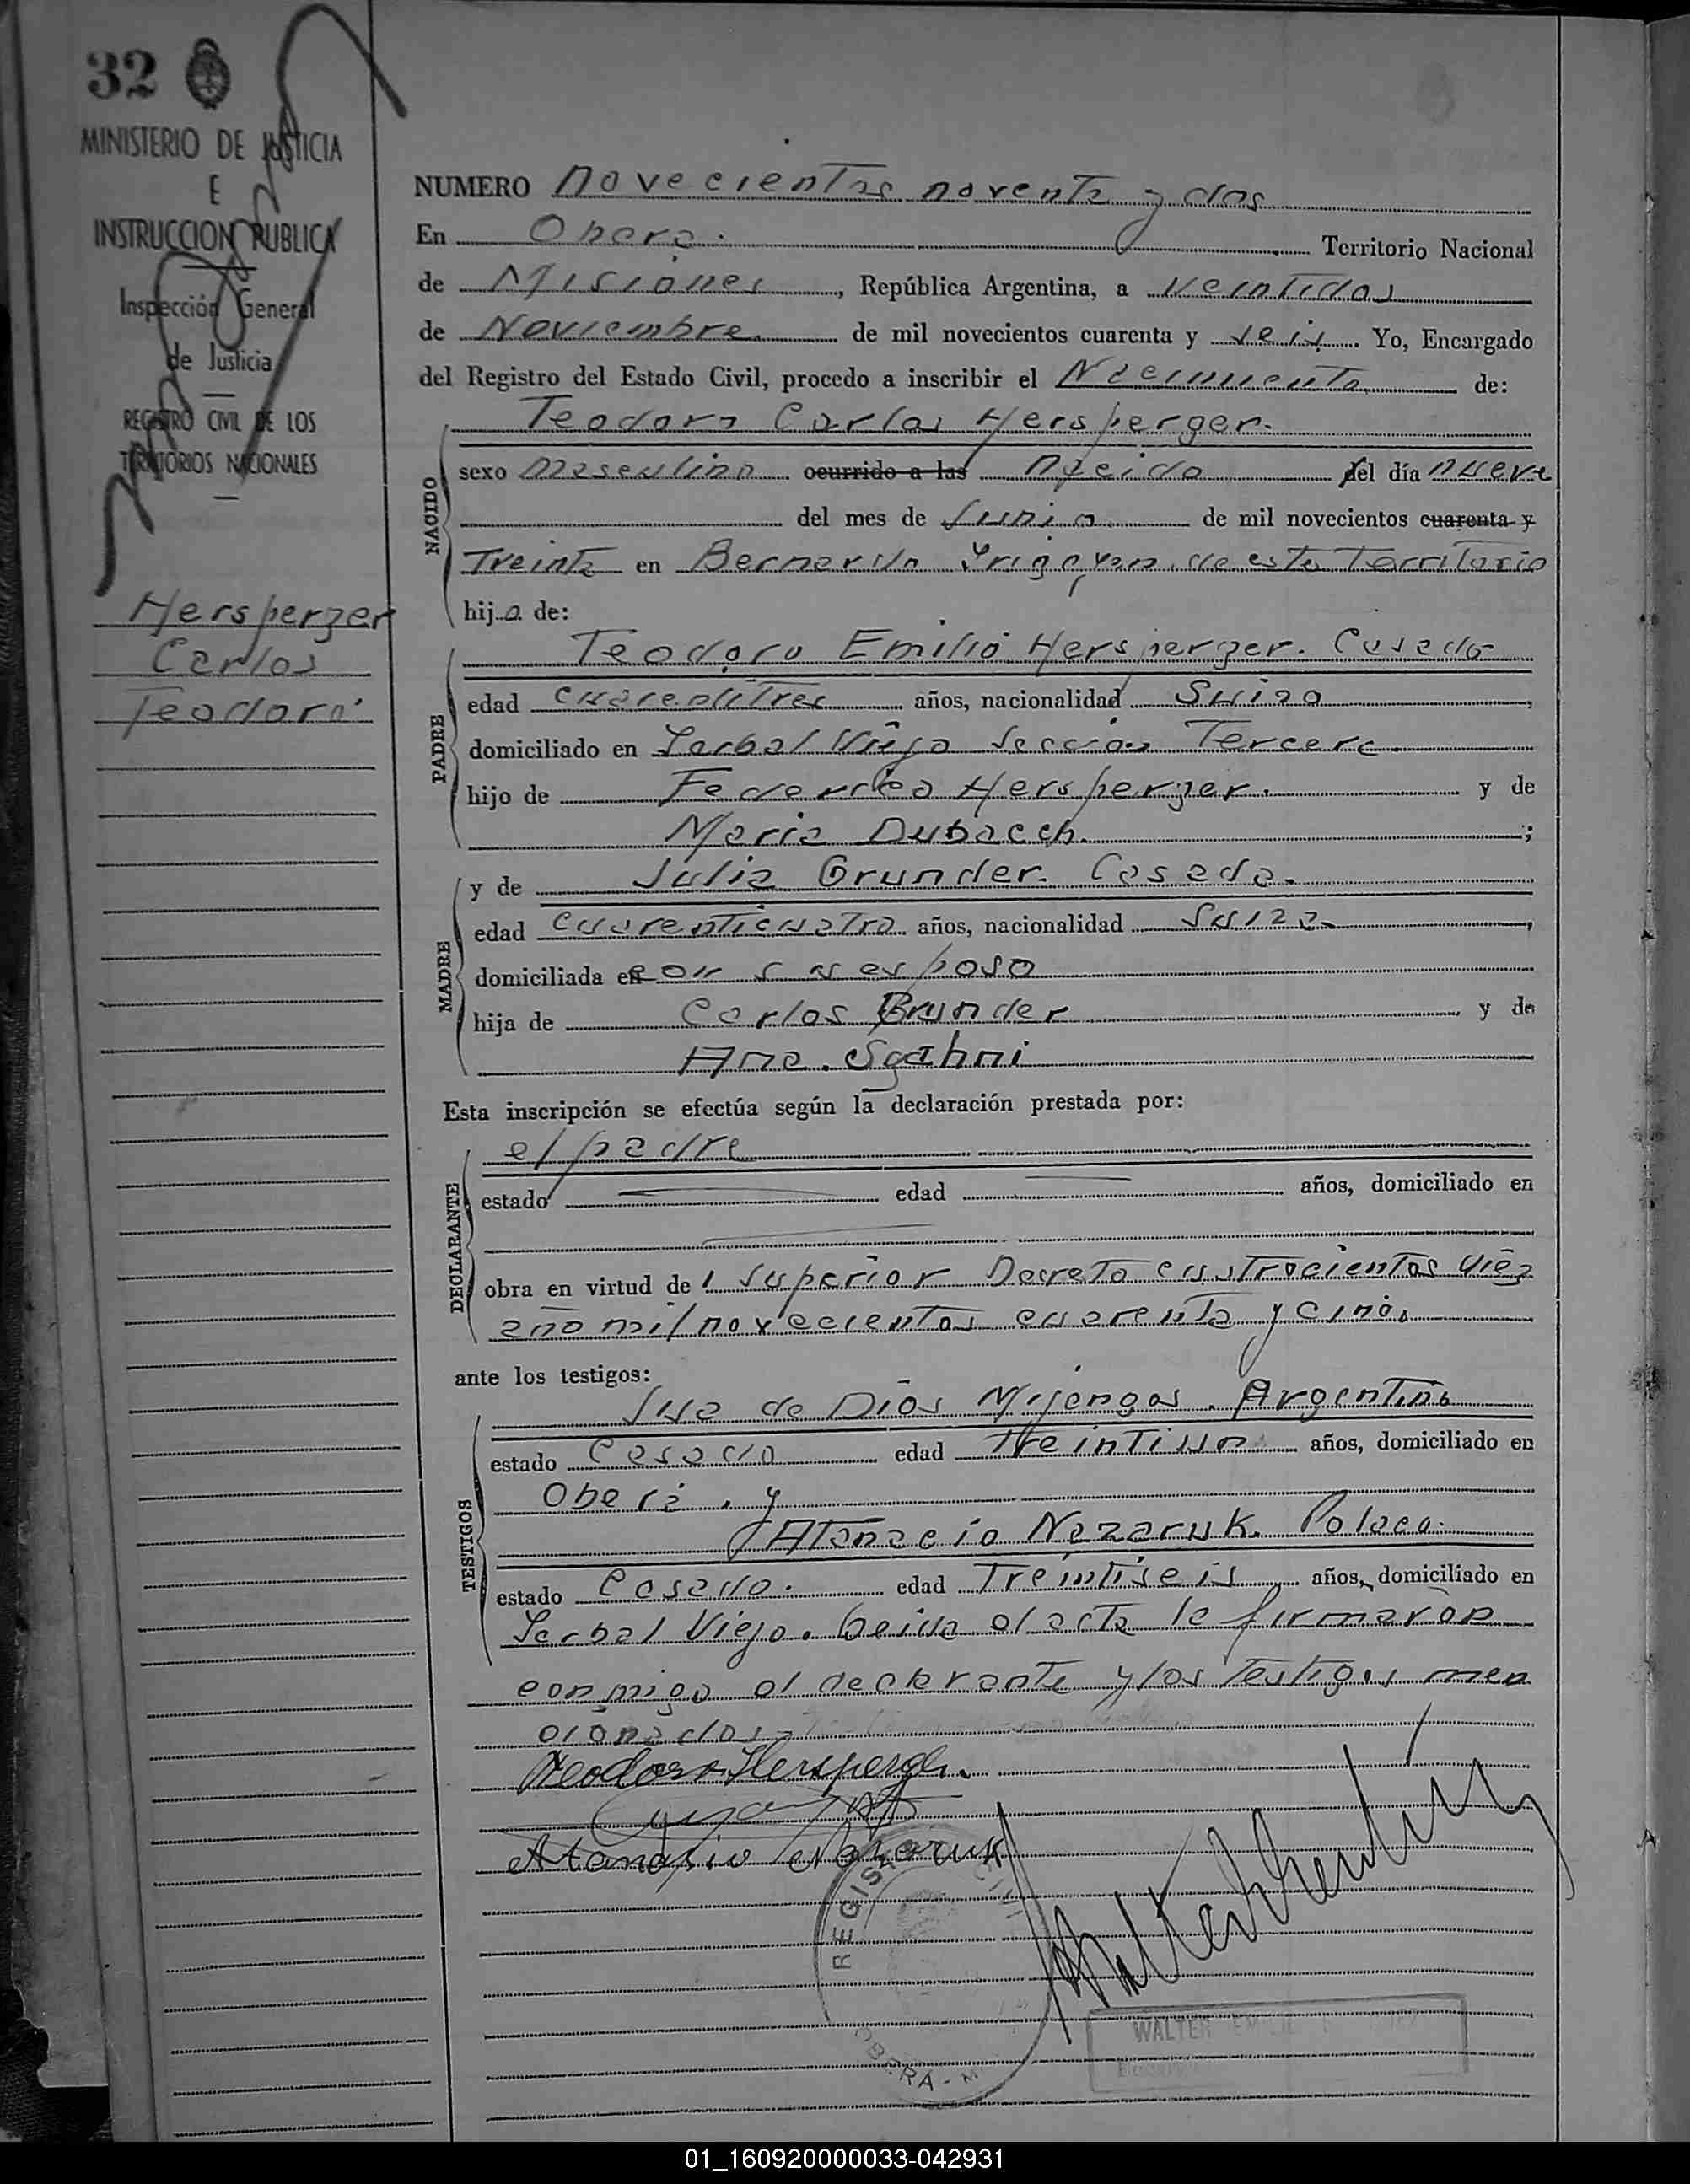 32
MINISTERIO DE JUSTICIA
E
INSTRUCCION PUBLICA
Inspección General
de Justicia
REGISTRO CIVIL DE LOS
TERRITORIOS NACIONALES
Hersperger
Carlos
Teodoro
NUMERO novecientos noventa y dos
En Obera. Territorio Nacional
de Misiones, República Argentina, a veintidos
de Noviembre de mil novecientos cuarenta y seis. Yo, Encargado
del Registro del Estado Civil, procedo a inscribir el Nacimiento de:
Teodoro Carlos Hersperger.
NACIDO
sexo masculino ocurrido a las nacido el día nueve
del mes de Junio de mil novecientos cuarenta y
Treinta en Bernardo Yrigoyen de este Territorio
hijo de:
PADRE
Teodoro Emilio Hersperger. Casado
edad cuarentitres años, nacionalidad Suizo
domiciliado en Yerbal Viejo Sección Tercera
hijo de Federico Hersperger. y de
Maria Dubacch.;
MADRE
y de Julia Grunder. Casada.
edad cuarenticuatro años, nacionalidad Suiza
domiciliada en con su esposo
hija de Carlos Grunder y de
Ana
Esta inscripción se efectúa según la declaración prestada por:
DECLARANTE
el padre
estado edad años, domiciliado en
obra en virtud del Superior Decreto cuatrocientos diez
año mil novecientos cuarenta y cinco
ante los testigos:
TESTIGOS
de Dios Mijangos. Argentino
estado Casado edad Treintiun años, domiciliado en
Oberá. y
Atanacio Nazaruk. Polaco.
estado Casado. edad Treintiseis años, domiciliado en
Yerbal Viejo. Leida el acta la firmaron
conmigo el declarante y los testigos men
cionados
Teodoro Hersperger.
Atanasio Nazaruk
REGIS
OBERA - M
WALTER
01_160920000033-042931